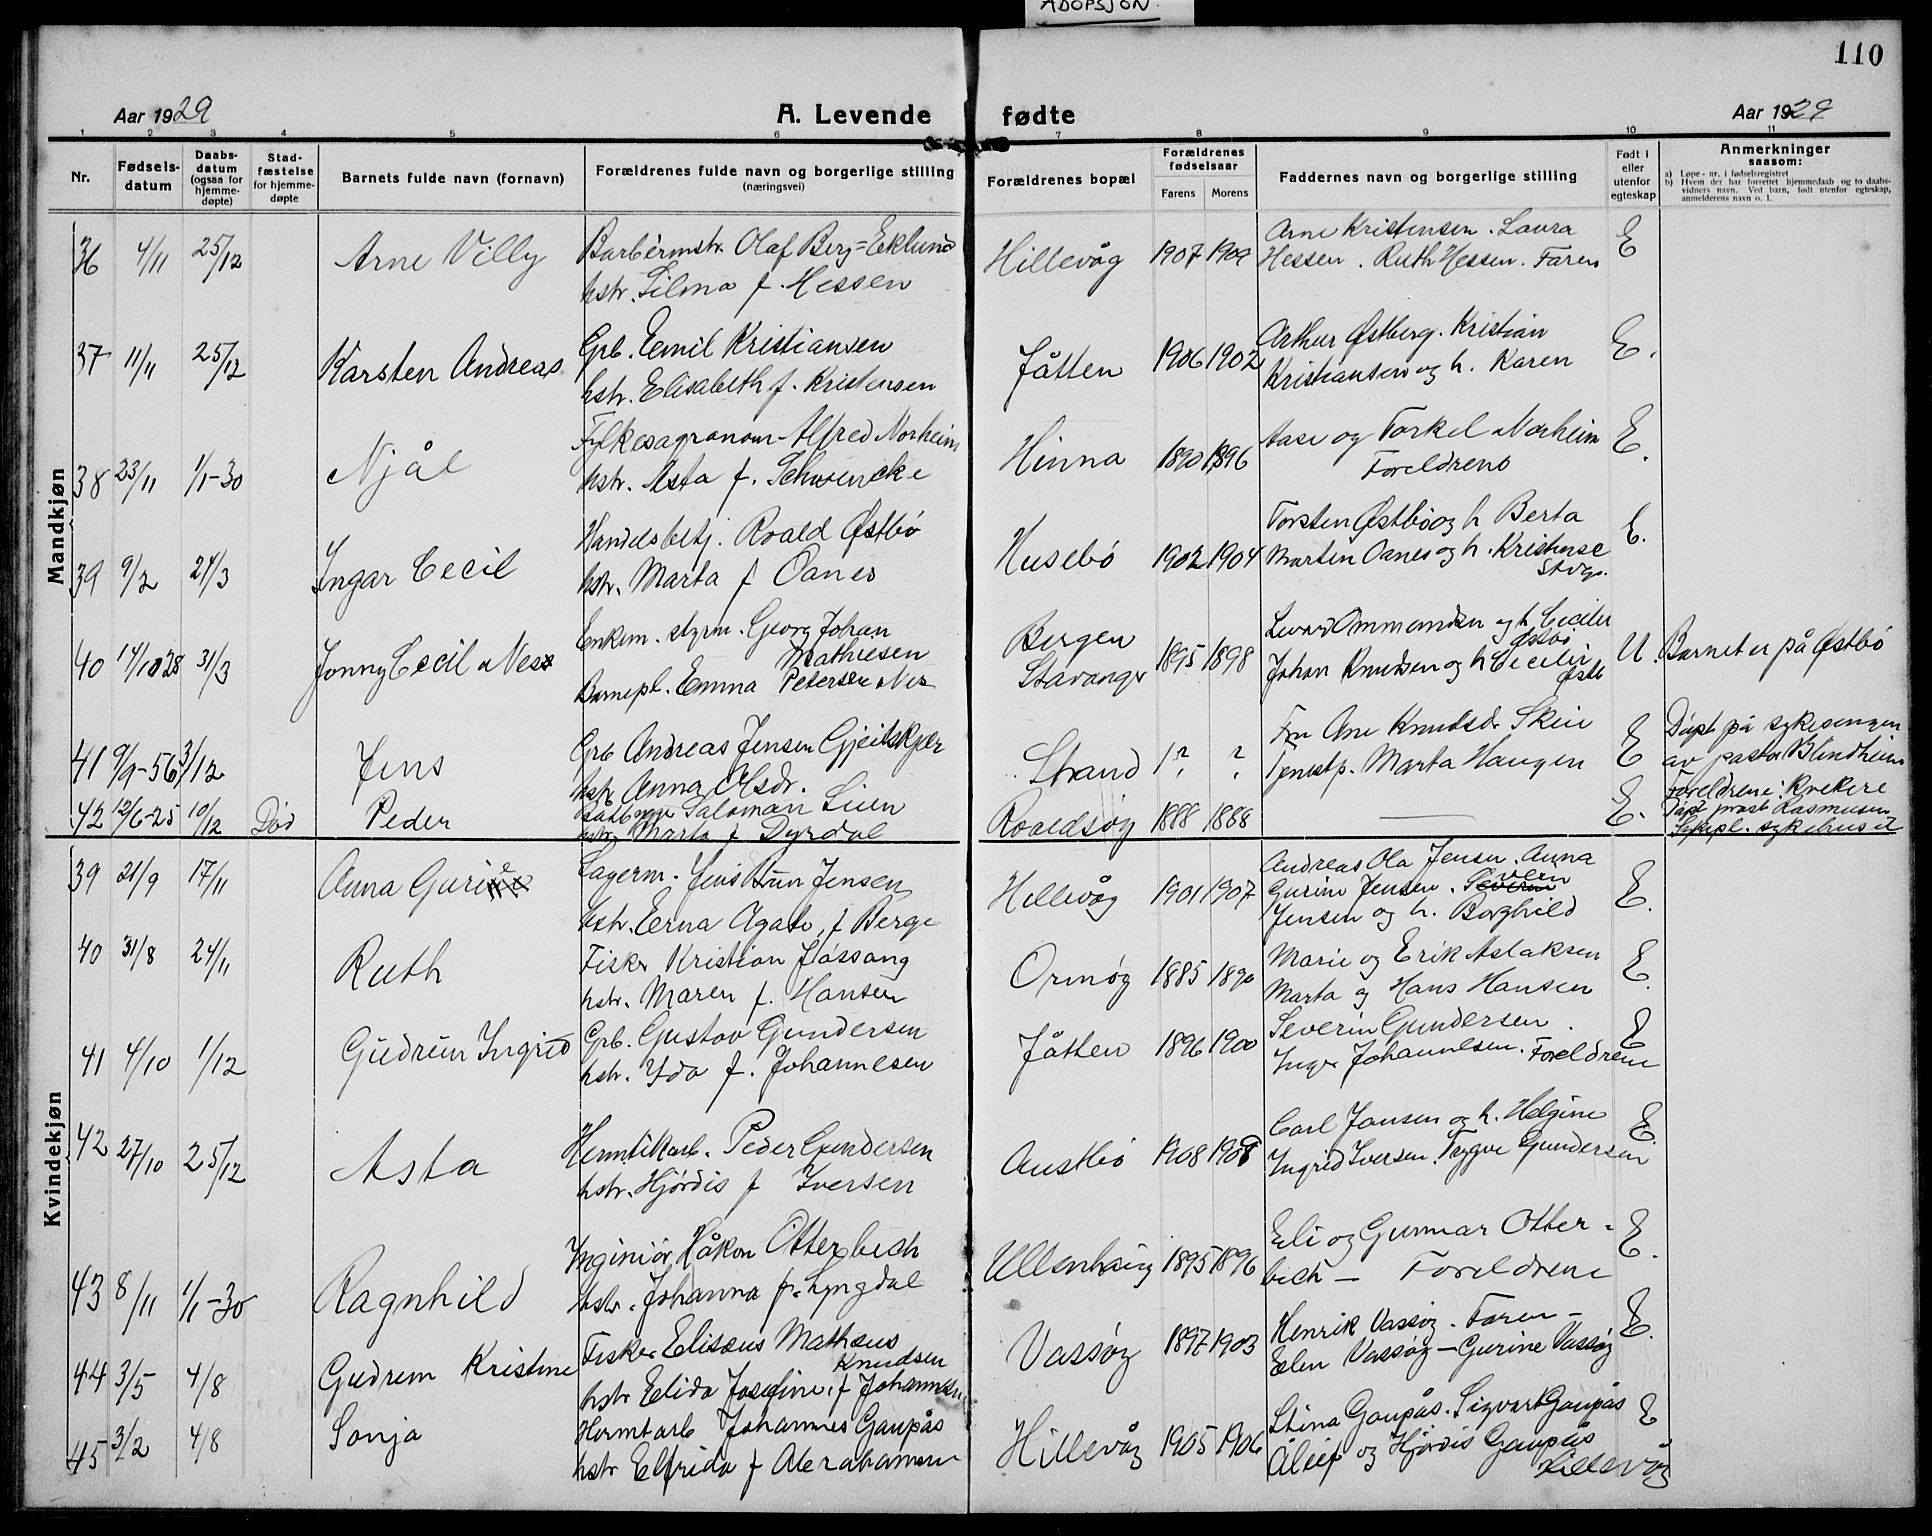 ADOPSJON
110
Aar 1929
A. Levende fødte
Aar 1929
1 2 3 4 5 6 7 8 9 10 11
Nr.
Fødsels-
datum
Daabs-
datum
(ogsaa for
hjemme-
døpte)
Stad-
fæstelse
for hjemme-
døpte
Barnets fulde navn (fornavn)
Forældrenes fulde navn og borgerlige stilling
(næringsvei)
Forældrenes bopæl
Forældrenes
fødselsaar
Farens Morens
Faddernes navn og borgerlige stilling
Født i
eller
utenfor
egteskap
Anmerkninger
saasom:
a) Løpe-nr. i fødselsregistret
b) Hvem der har forrettet hjemmedaab og to daabs-
vidners navn. Ved barn, født utenfor egteskap,
anmelderens navn o. l.
Mandkjøn
36 4/11 25/12 Arne Villy
Barbermstr. Olaf Berg=Eklund
hstr. Silma f. Hessen
Hillevåg 1907 1909
Arne Kristensen. Laura
Hessen. Ruth Hessen. Faren
E
37 11/11 25/12 Karsten Andreas
Grb. Emil Kristiansen
hstr. Elisabeth f. Kristensen
Jåtten 1906 1902
Arthur Østberg. Kristian
Kristiansen og h. Karen
E.
38 23/11 1/1-30 Njål
Fylkesagronom Alfred Norheim
hstr. Asta f. Schwencke
Hinna 1890 1896
Aase og Torkel Norheim
Foreldrene
E.
39 9/2 24/3 Ingar Cecil
Handelsbetj. Roald Østbö
hstr. Marta f Oanes
Husebö 1902 1904
Torsten Østbö og h Berta
Marten Oanes og h. Kristense
Stvgr.
E.
40 14/10 28 31/3 Jonny Cecil Ness
Enkem. styrm. Georg Johan
Mathiesen
Barnepl. Emma Petersen Nes
Bergen
Stavanger
1895 1898
Ommundsen og h. Cecilie
Østbö
Johan Knudsen og h Cecilie
Østb
U. Barnet er på Østbö
41 9/9-56 3/12 Jens
Grb Andreas Jensen Gjeitskjær
hstr Anna
Strand 1? ?
Fru Ane Knudsdr Skeie
Tjenestp. Marta Haugen
E
Døpt på sykesengen
av pastor Blindheim
Foreldrene: kvekere
42 12/6-25 10/12 Död Peder
Salomon Lien
hstr. Marta f Dyrdal
Roaldsöy 1888 1888
E.
prest Rasmussen
Sykepl. sykehuset
Kvindekjøn
39 21/9 17/11 Anna Gurine
Lagerm. Jens Bun Jensen
hstr. Erna Agate, f Berge
Hillevåg 1901 1907
Andreas Ola Jensen. Anna
Gurine Jensen. Severin
Jensen og h. Borghild
E.
40 31/8 24/11 Ruth
Fisker Kristian Jössang
hstr. Maren f. Hansen
Ormöy 1885 1890
Marie og Erik Aslaksen
Marta og Hans Hansen
E.
41 4/10 1/12 Gudrun Ingrid
Grb. Gustav Gundersen
hstr. Ida f. Johannesen
Jåtten 1896 1900
Severin Gundersen.
Inger Johannesen. Foreldrene
E
42 27/10 25/12 Asta
Hermtikarb. Peder Gundersen
hstr. Hjördis f Iversen
Austbö 1908 1908
Carl Jansen og h. Helgine
Ingrid Iversen. Trygve Gundersen
E.
43 8/11 1/1-30 Ragnhild
Inginiör Håkon Otterbech
hstr. Johanna f. Lyngdal
Ullenhaug 1895 1896
Eli og Gunnar Otter-
bech - Foreldrene
E.
44 3/5 4/8 Gudrun Kristine
Fisker Elisæus Mathæus
Knudsen
hstr Elida Josefine, f Johannesen
Vassöy 1897 1903
Henrik Vassöy. Faren -
Elen Vassöy - Gurine Vassöy
E.
45 3/2 4/8 Sonja
Hermtarb Johannes Gaupås
hstr Elfrida f Abrahamsen
Hillevåg 1905 1906
Stina Gaupås. Sigvart Gaupås
og Hjördis Gaupås
Hillevåg
E